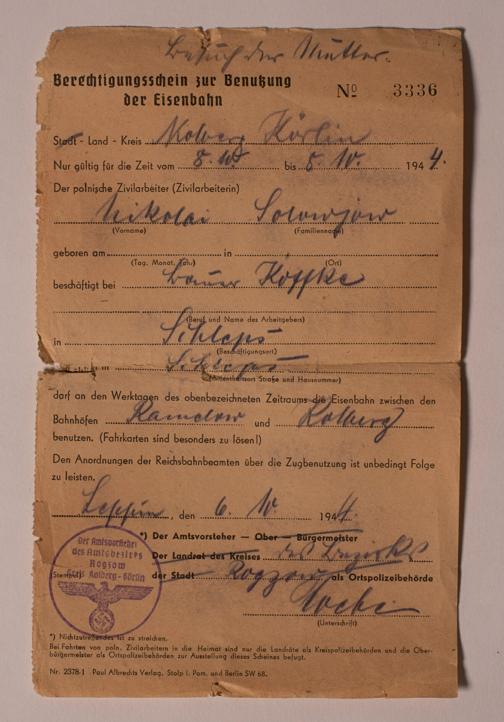 Besuch der Mutter.
Berechtigungsschein zur Benutzung
der Eisenbahn
No 3336
Stadt - Land - Kreis Kolberg Körlin
Nur gültig für die Zeit vom 8. 10. bis 8. 10. 1944.
Der polnische Zivilarbeiter (Zivilarbeiterin)
Nikolai Solowjow
(Vorname) (Familienname)
geboren am in
(Tag, Monat, Jahr) (Ort)
beschäftigt bei Bauer Köffke
(Beruf und Name des Arbeitgebers)
in Schleps
(Beschäftigungsort)
Schleps
(Aufenthaltsort Straße und Hausnummer)
darf an den Werktagen des obenbezeichneten Zeitraums die Eisenbahn zwischen den
Bahnhöfen Ramelow und Kolberg
benutzen. (Fahrkarten sind besonders zu lösen!)
Den Anordnungen der Reichsbahnbeamten über die Zugbenutzung ist unbedingt Folge
zu leisten.
, den 6. 10. 1944.
*) Der Amtsvorsteher — Ober — Bürgermeister
Der Landrat des Kreises des Bezirks
(Stempel) der Stadt Rogzow als Ortspolizeibehörde
(Unterschrift)
Der Amtsvorsteher
des Amtsbezirks
Rogzow
Kreis Kolberg-Körlin
*) Nichtzutreffendes ist zu streichen.
Bei Fahrten von poln. Zivilarbeitern in die Heimat sind nur die Landräte als Kreispolizeibehörden und die Ober-
bürgermeister als Ortspolizeibehörden zur Ausstellung dieses Scheines befugt.
Nr. 2378-1 Paul Albrechts Verlag, Stolp i. Pom. und Berlin SW 68.